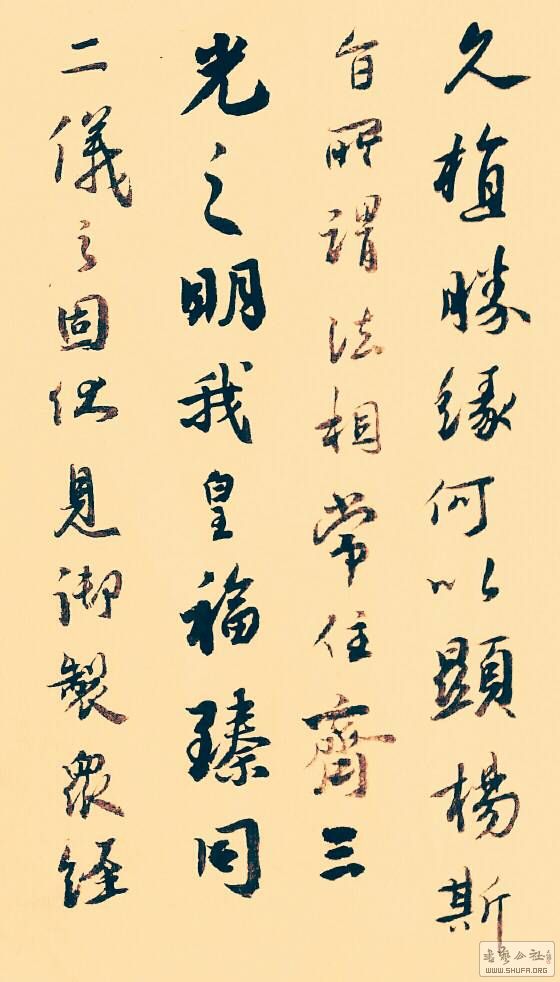 久植勝緣何以顯楊斯
旨所謂法相常住齊三
光之明我皇福臻同
二儀之固伏見御製衆經
書藝公社
WWW.SHUFA.ORG